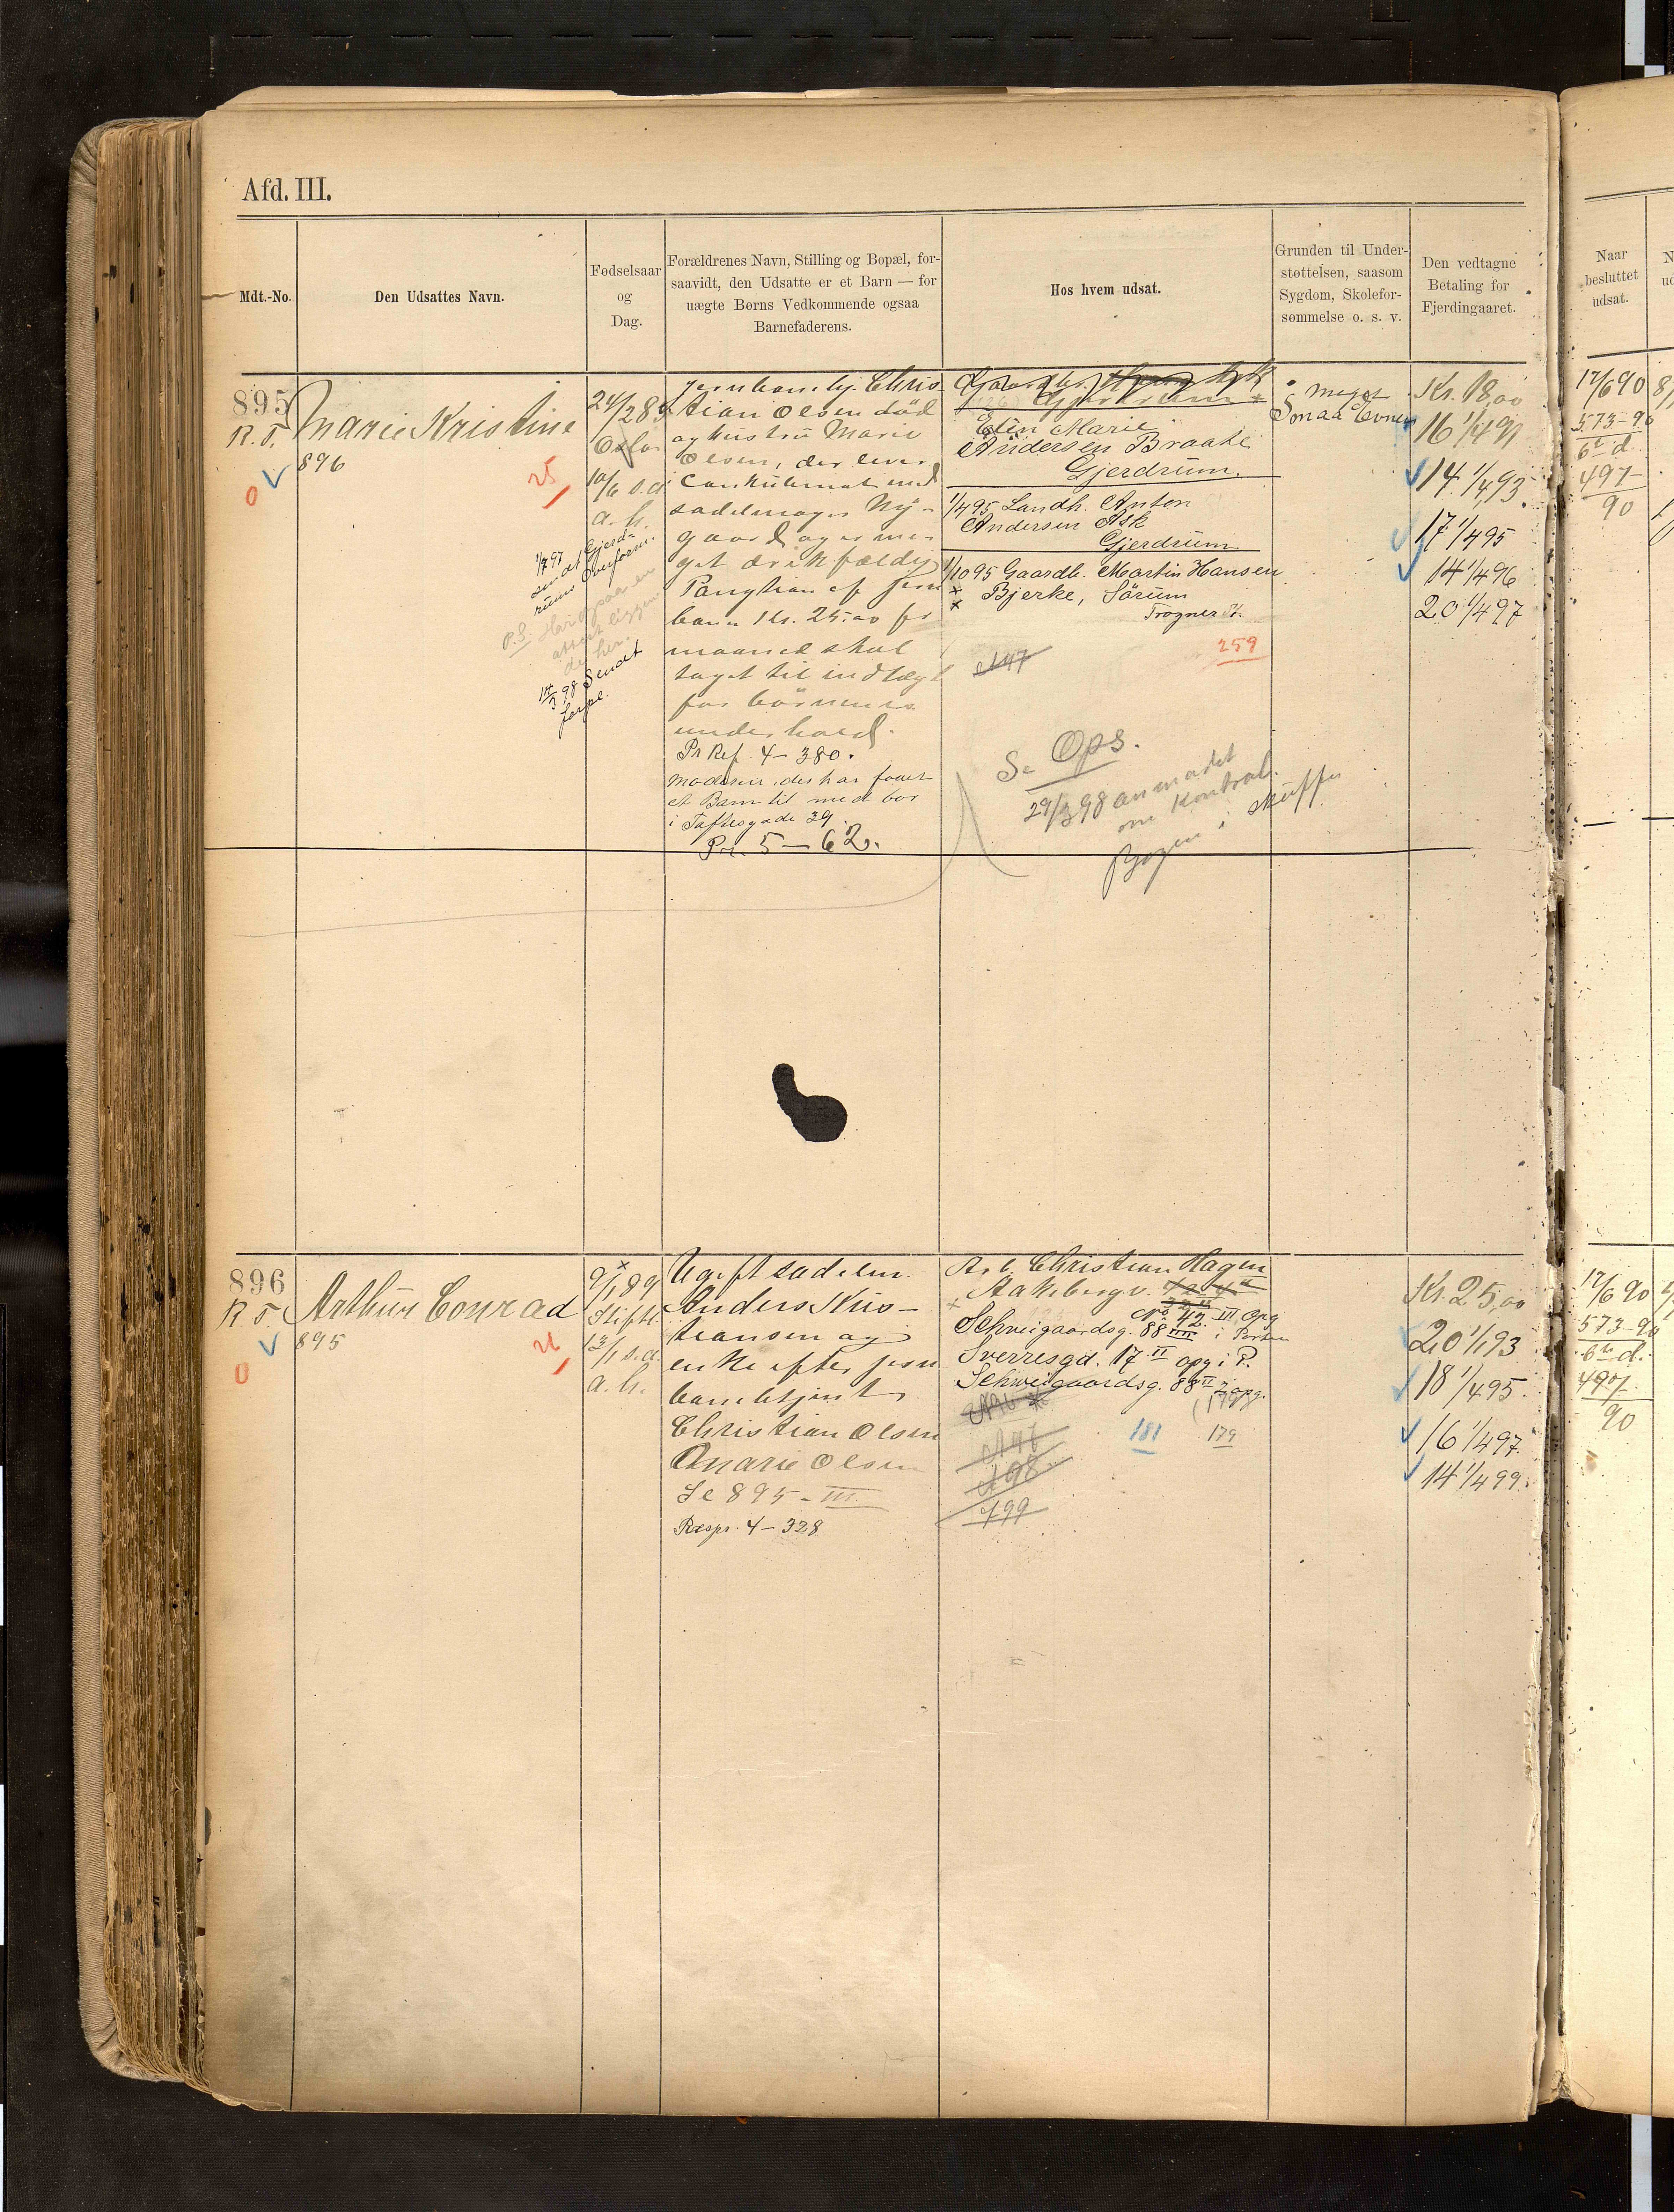 Afd. III.
Mdt.-No.
Den Udsattes Navn.
Fødselsaar
og
Dag.
Forældrenes Navn, Stilling og Bopæl, for-
saavidt, den Udsatte er et Barn — for
uægte Børns Vedkommende ogsaa
Barnefaderens.
Hos hvem udsat.
Grunden til Under-
støttelsen, saasom
Sygdom, Skolefor-
sømmelse o. s. v.
Den vedtagne
Betaling for
Fjerdingaaret.
Naar
besluttet
udsat.
895
R. T.
Marie Kristine
896
25
0
24/2 85
Oslo
10/6 s.a.
a. h.
1/7 97
sendt Gjerd-
rums
P.S. Har ogsaa en
attest liggende
der her.
98 Sendt
Jernbanebtj. Chris
tian Olsen død
og hustru Marie
Olsen, der lever
i Conkubinat med
sadelmager Ny-
gaard og er me-
get drikfældig
Pangtion af Jern
banen Kr. 25.00 pr
maaned skal
taget til indtægt
for børnenes
underhold.
Pr Ref. 4 - 380.
Moderen, der har faaet
et Barn til med bor
i Toftesgade 39.
Pr. 5 - 62.
Gaardbr.
Gjerdrum
Elin Marie
Andersen Braate
Gjerdrum.
1/4 95 Landh. Anton
Andersen Ask
Gjerdrum
1/10 95 Gaardb. Martin Hansen
Bjerke, Sørum
Trogner St.
147
259
Se Ops.
29/3 98 anmodet
om Kontrol.
i skuffen
meget
Smaa Evner
Kr. 18,00
16 1/4 91
14 1/4 93.
17 1/4 95
14 1/4 96
20 1/4 97
12/6 90
573-90
6te d.
497
90
896
R T.
Arthur Conrad
895
21
0
9/1 89
Stifts.
13/1 s.a.
a. h.
Ugift sadelm.
Anders Kris-
tiansen og
enke efter jern
banebetjent
Christian Olsen
Marie Olsen
Se 895 - III.
Respr. 4 - 328
Arb. Christian Hagen
Aakebergv.
No 42. III Opg
Schweigaardsg. 88 III i Porten
Sverresgd. 17 II opg i P.
Schweigaardsg. 88 II 2 opg.
(179
181 179
198
499
Kr. 25,00
20 1/1 93
18 1/4 95.
16 1/4 97.
14 1/4 99.
12/6 90
573-90
6te d.
497
90